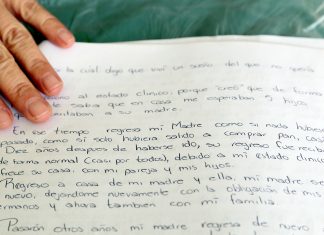 la cual digo que viví un sueño del que no quería
al estado clínico, porque "creo" que de forma
sabía que en casa me esperaban 5 hijos
a su madre.
En ese tiempo regresa mi Madre como si nada hubiera
pasado, como si solo hubiera salido a comprar pan,
Diez años después de haberse ido, su regreso fue recibi
de forma normal (casi por todos), debido a mi estado clínico
su casa, con mi pareja y mis hijos.
Regreso a casa de mi madre y ella, mi madre se
nuevo, dejandome nuevamente con la obligación de mis
ermanos y ahora tambien con mi familia.
Pasarón otros años mi madre regresa de nuevo